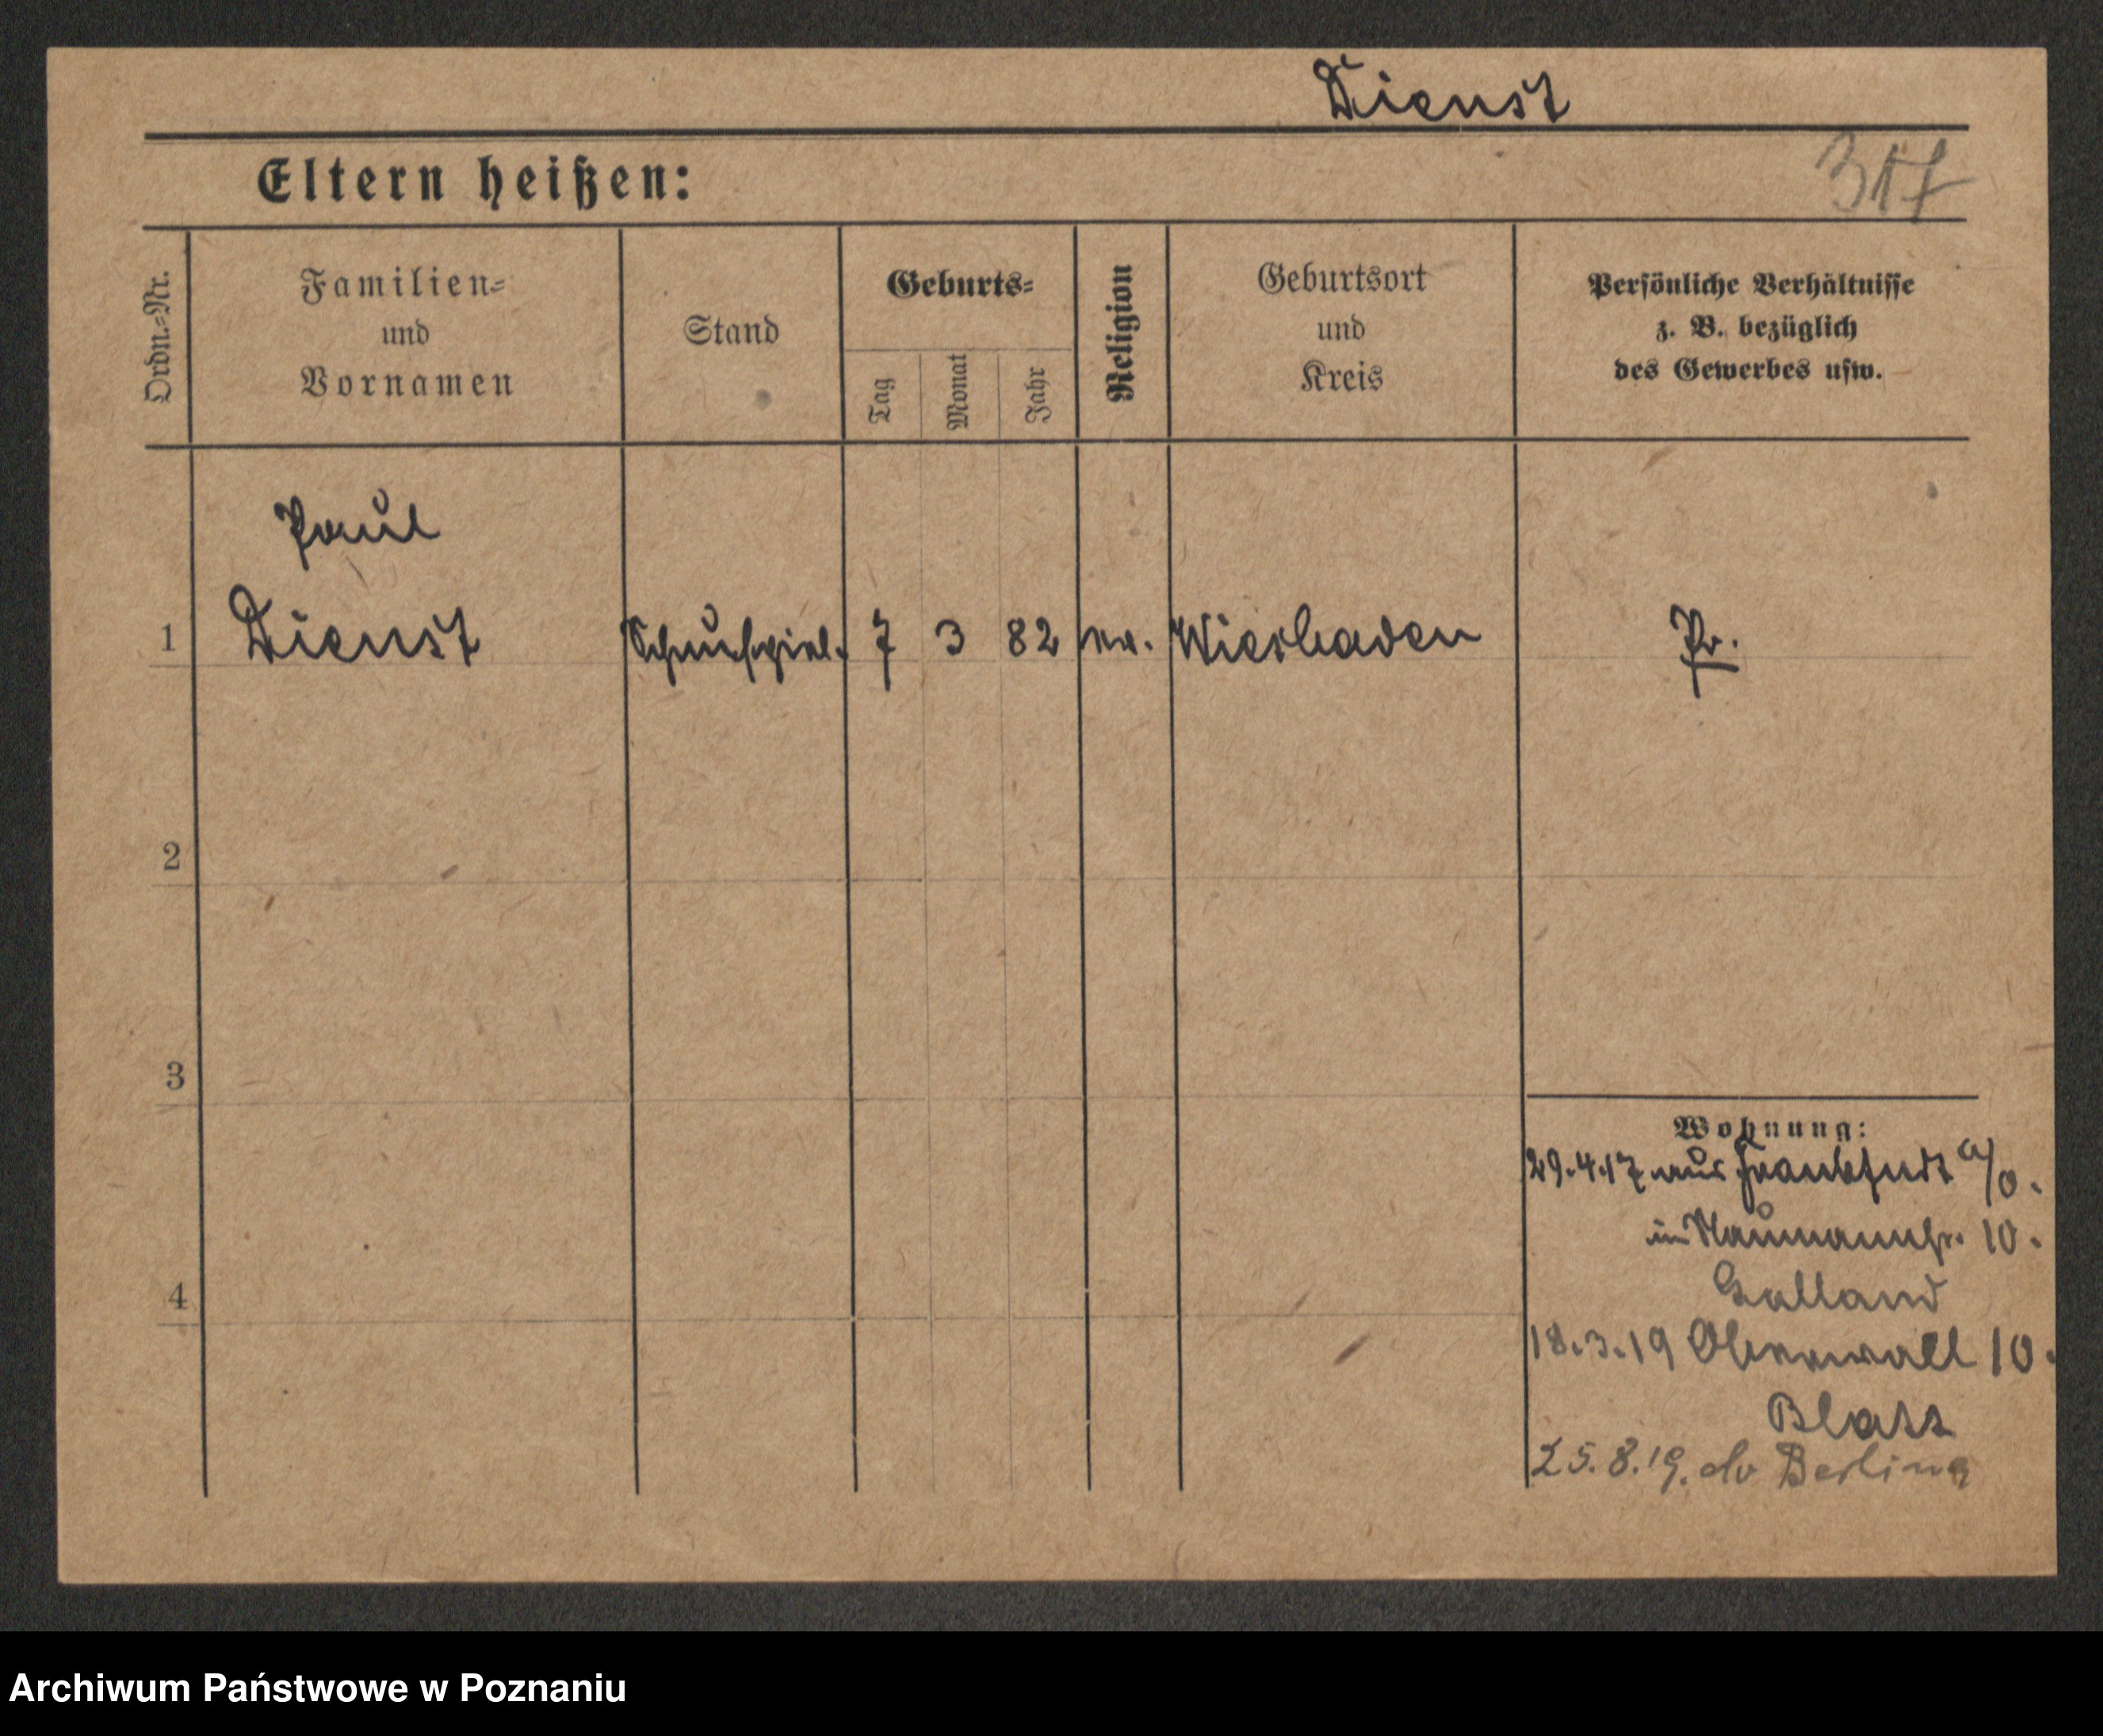 Dienst
317
Eltern heißen:
Ordn.-Nr.
Familien-
und
Vornamen
Stand
Geburts-
Tag
Monat
Jahr
Religion
Geburtsort
und
Kreis
Persönliche Verhältnisse
z. B. bezüglich
des Gewerbes usw.
Paul
1 Dienst Schauspiel. 7 3 82 ev. Wiesbaden Pr.
2
3
4
Wohnung:
29.4.17 aus Frankfurt a/O.
in Naumannstr. 10.
Galland
18.3.19 Oberwall 10.
Blass
25.8.19. Berlin
Archiwum Państwowe w Poznaniu